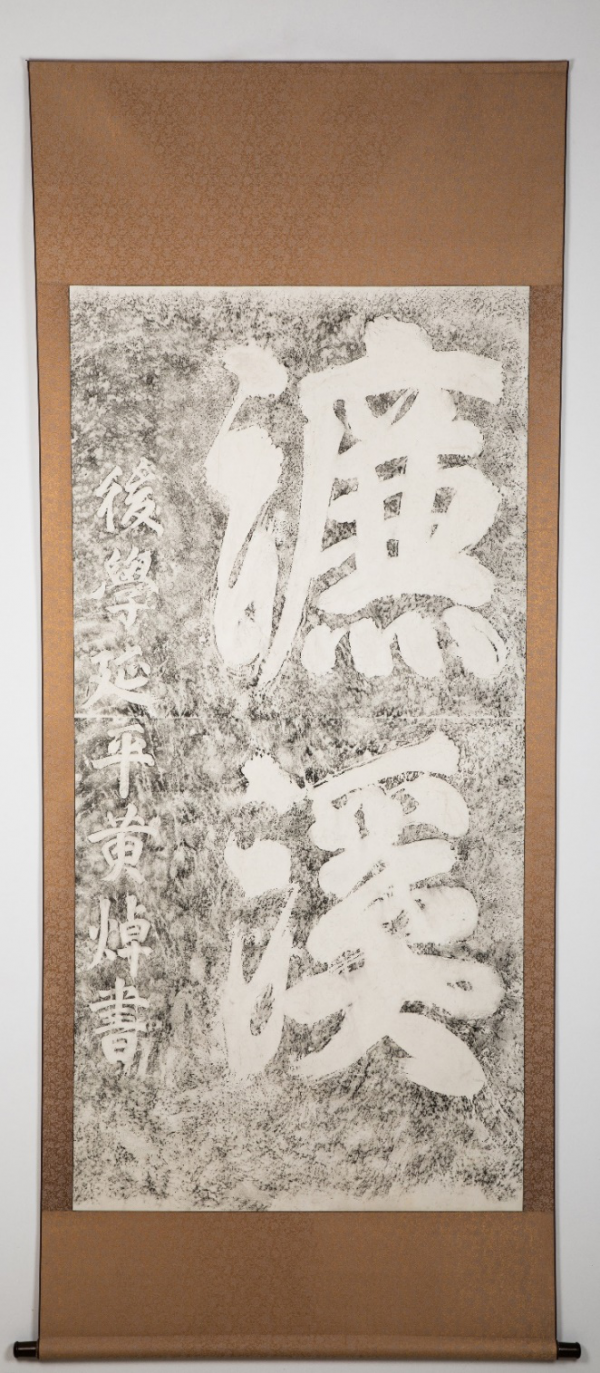 濂溪
後學延平黃焯書